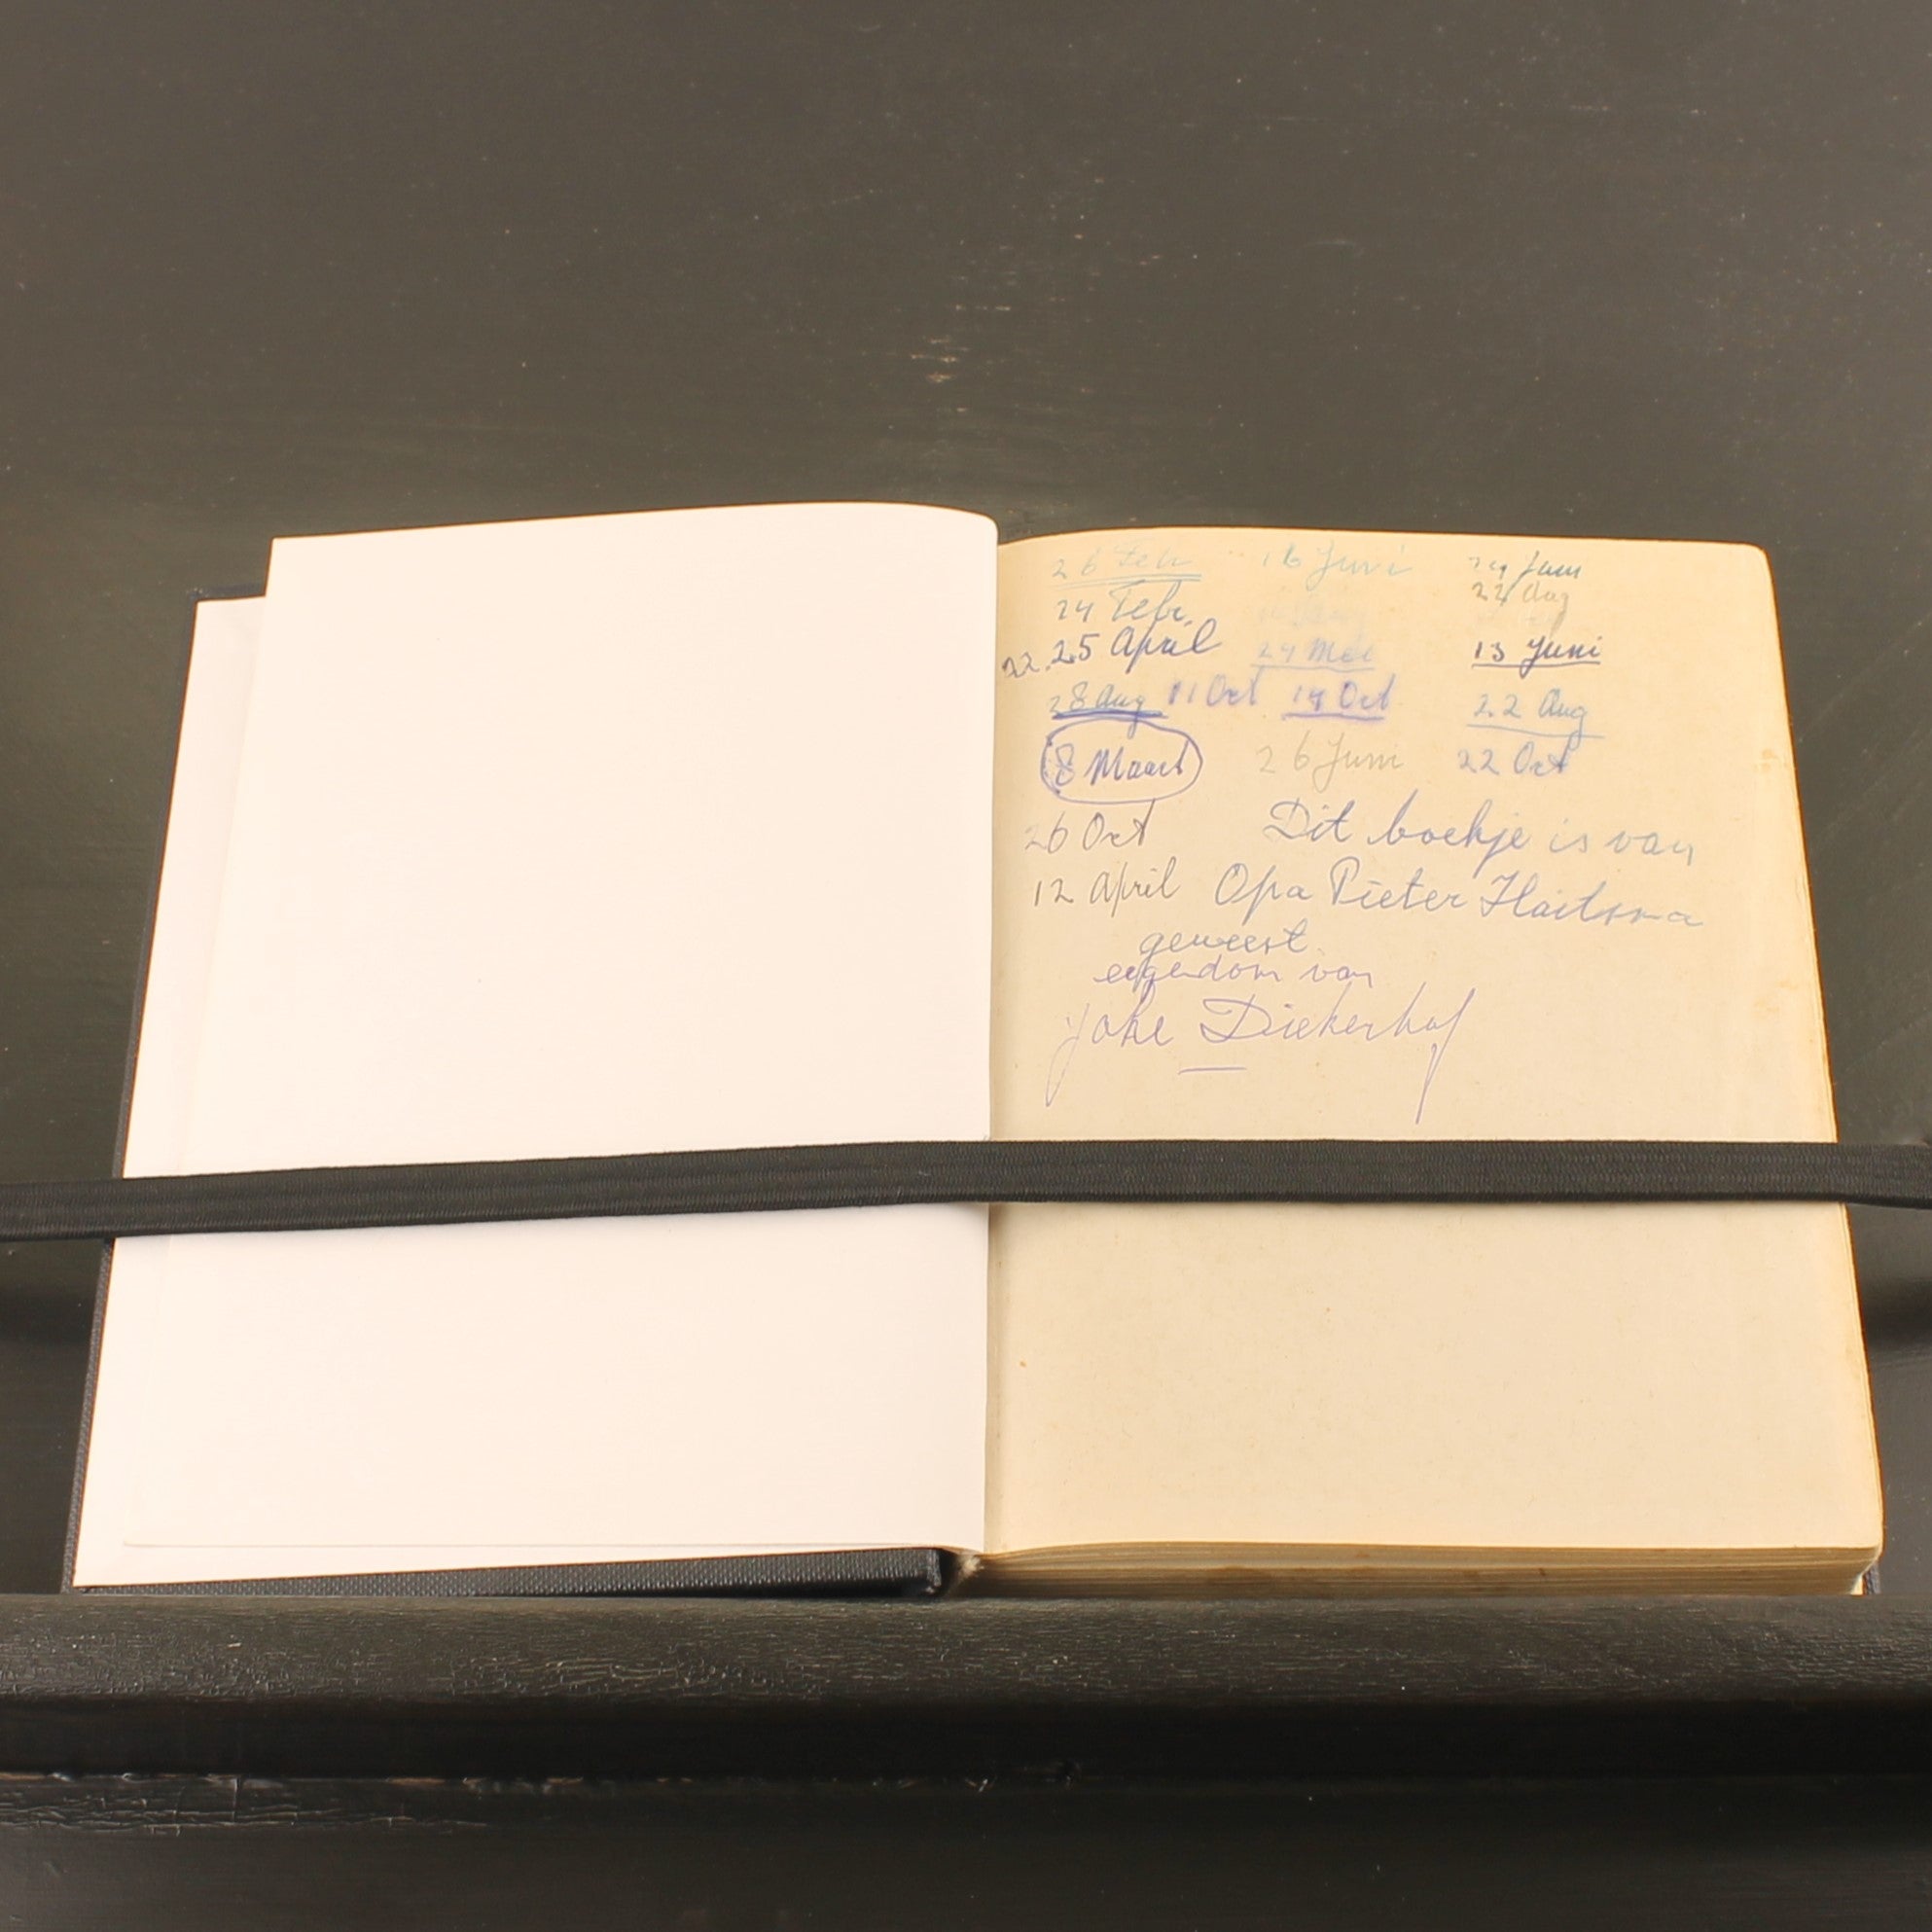 26 Feb 16 Juni 29 Juni
24 Febr. 22 Aug
22. 25 April 29 Mei 13 Juni
28 Aug 11 Oct 14 Oct 22 Aug
8 Maart 26 Juni 22 Oct
26 Oct Dit boekje is van
12 April Opa Pieter Haitsma
geweest.
eigendom van
Joke Diekerhof